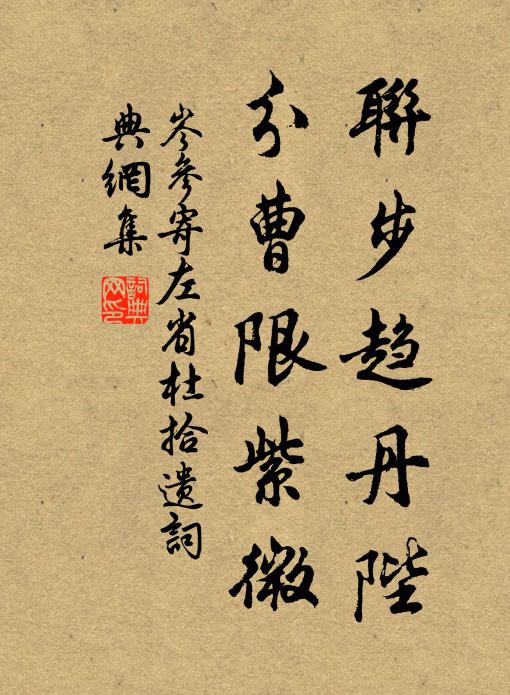 聯步趨丹陛
分曹限紫微
岑參寄左省杜拾遺詞
典網集
詞典
网印